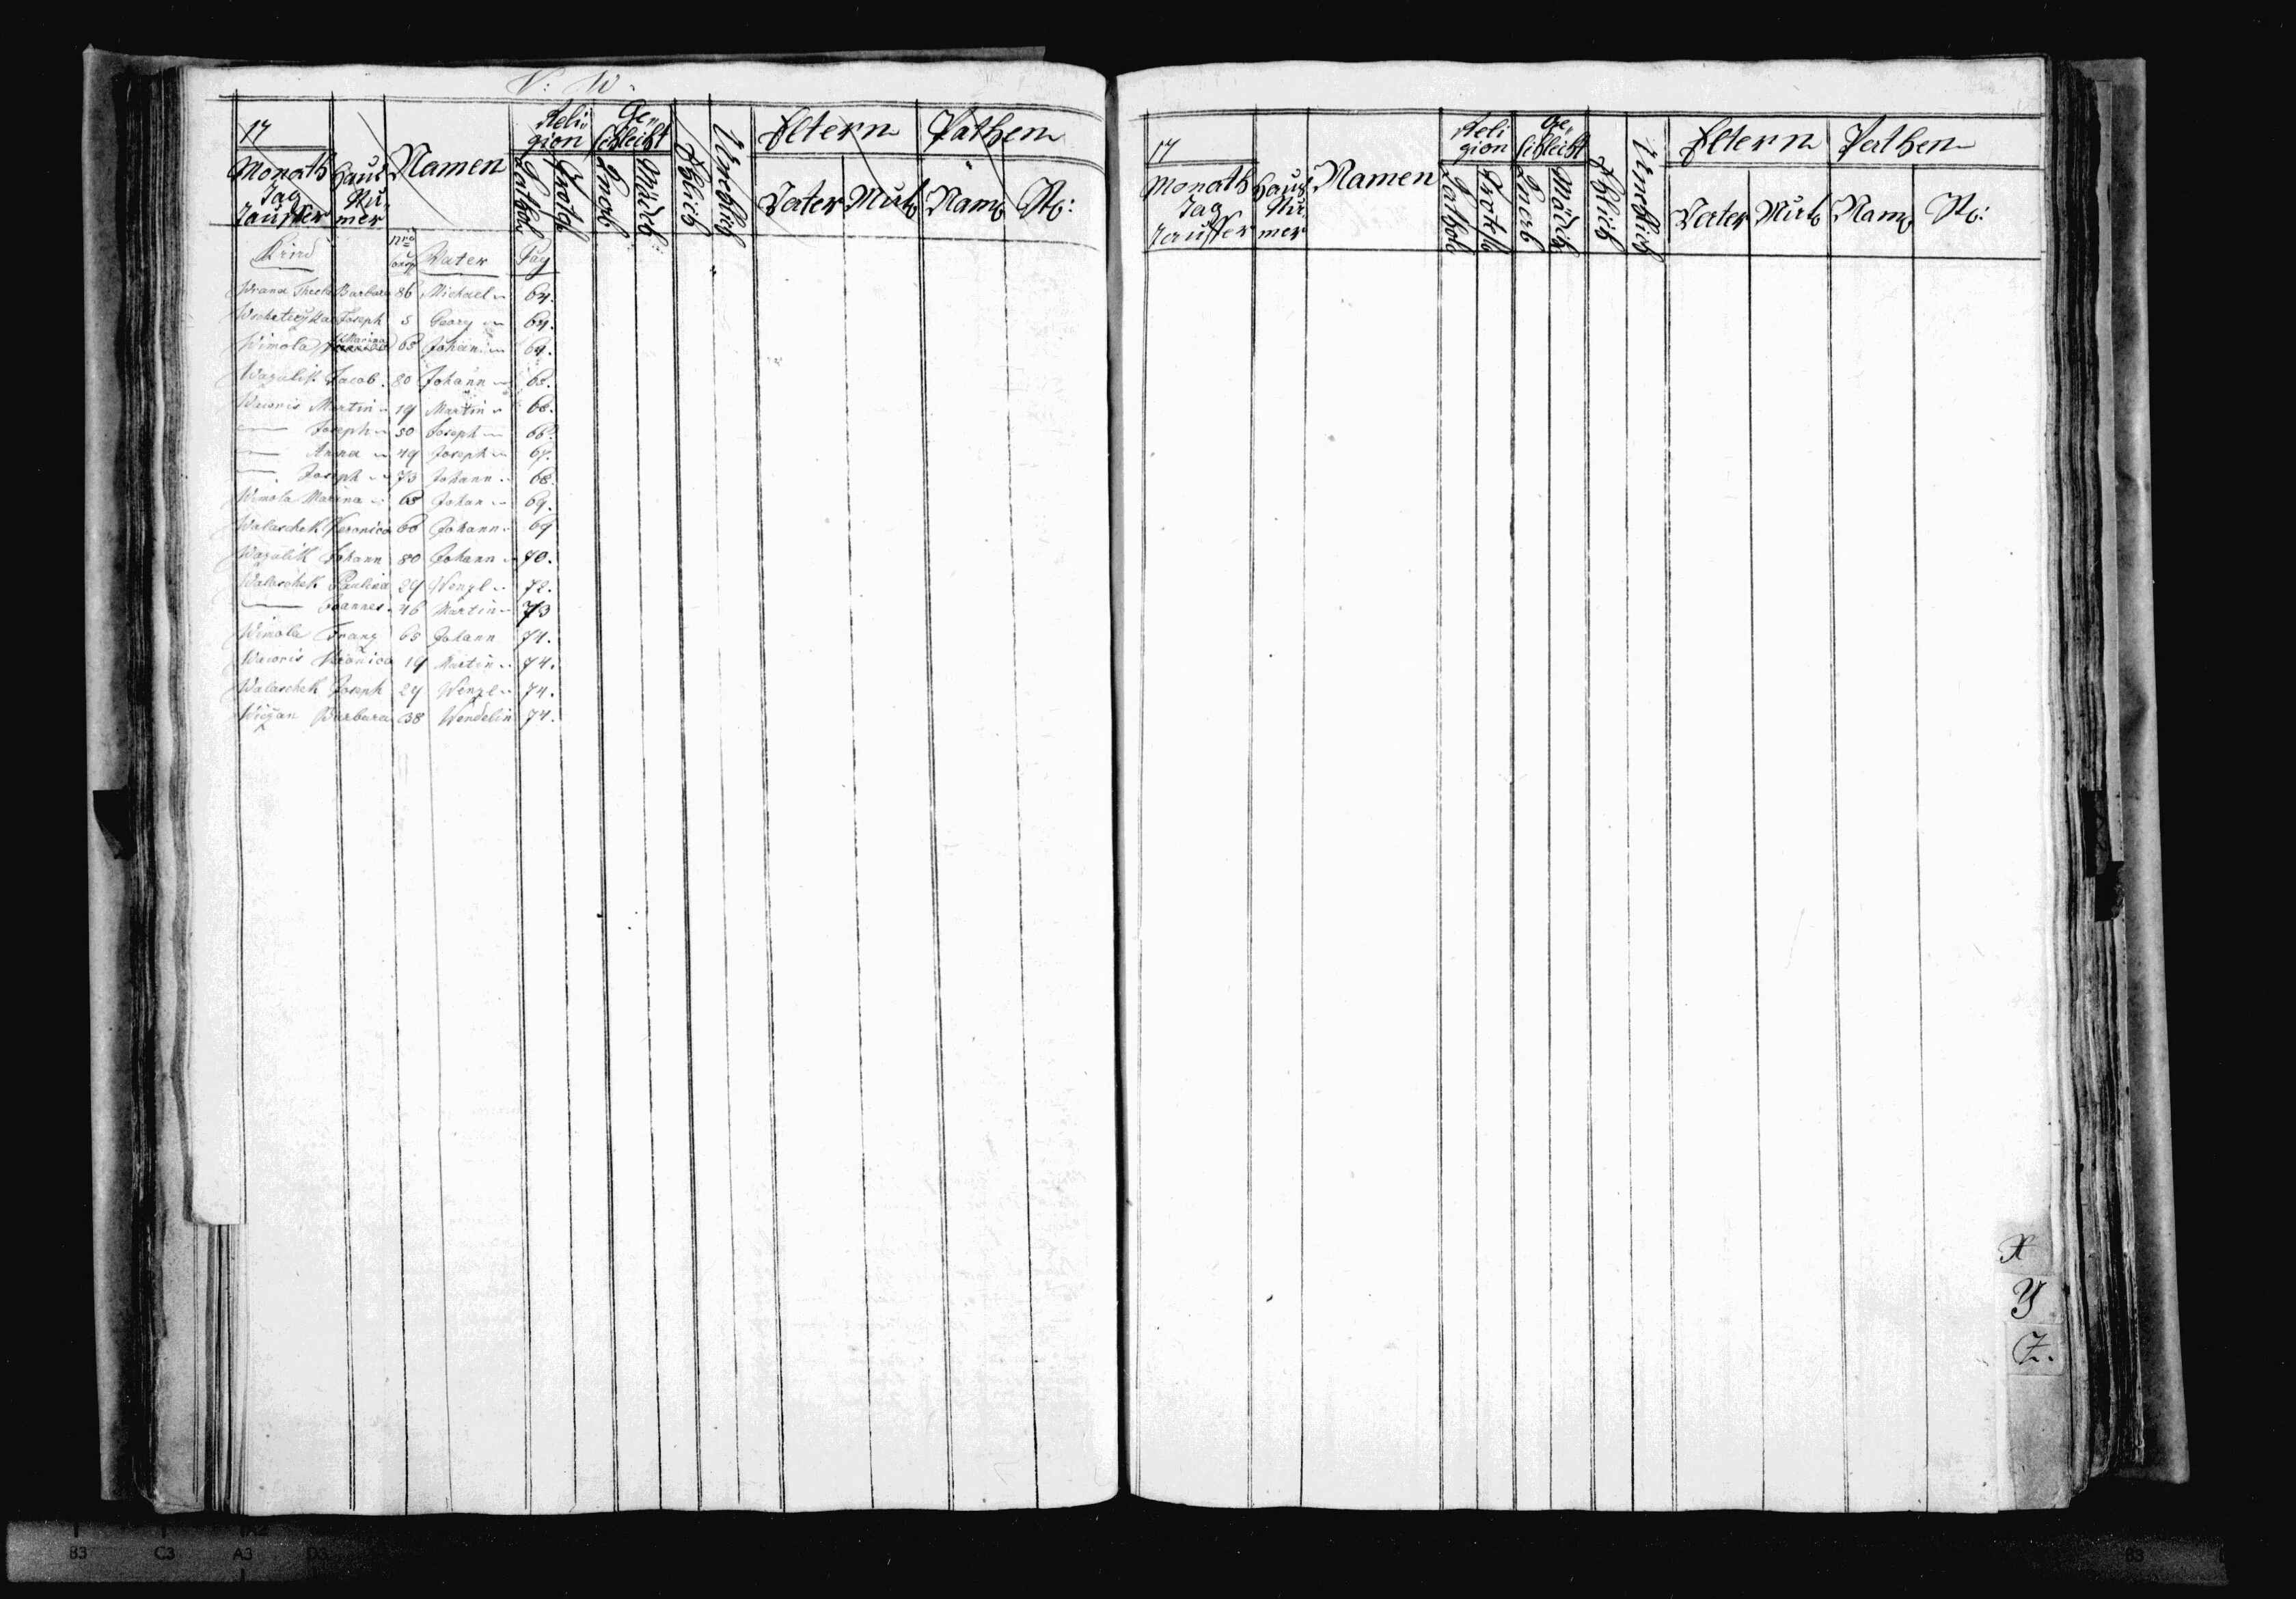 V: W.
17
Monath Tag Tauffer
Haus Nu mer
Namen
Reli gion
Kathol
Protest
Ge schlecht
Knab
Mädch
Ehlich
Unehlich
Eltern
Vater Mutt
Pathen
Nam St:
Kind Nro Vater Pag
Wrana Barbara 86 Michael 64.
Joseph 5 Georg 64.
Wimola Marina 65 Johann 64.
Wazalik Jacob. 80 Johann 65.
Waworis Martin 19 Martin 66.
— Joseph 50 Joseph 66.
— Anna 49 Joseph 67.
— Joseph 73 Johann 68.
Wimola Marina 65 Johan 69.
Walaschek Veronica 66 Johann 69
Wazalik Johann 80 Johann 70.
Walaschek Paulina 29 Wenzl 72.
— Joannes 46 Martin 73
Wimola Franz 65 Johann 74.
Waworis Veronica 19 Martin 74.
Walaschek Joseph 29 Wenzl 74.
Barbara 38 Wendelin 74.
17
Monath Tag Tauffer
Haus Nu mer
Namen
Reli gion
Kathol
Protest
Ge schlecht
Knab
Mädch
Ehlich
Unehlich
Eltern
Vater Mutt
Pathen
Nam St:
X
Y
Z.
B3 C3 A3 D3
B3